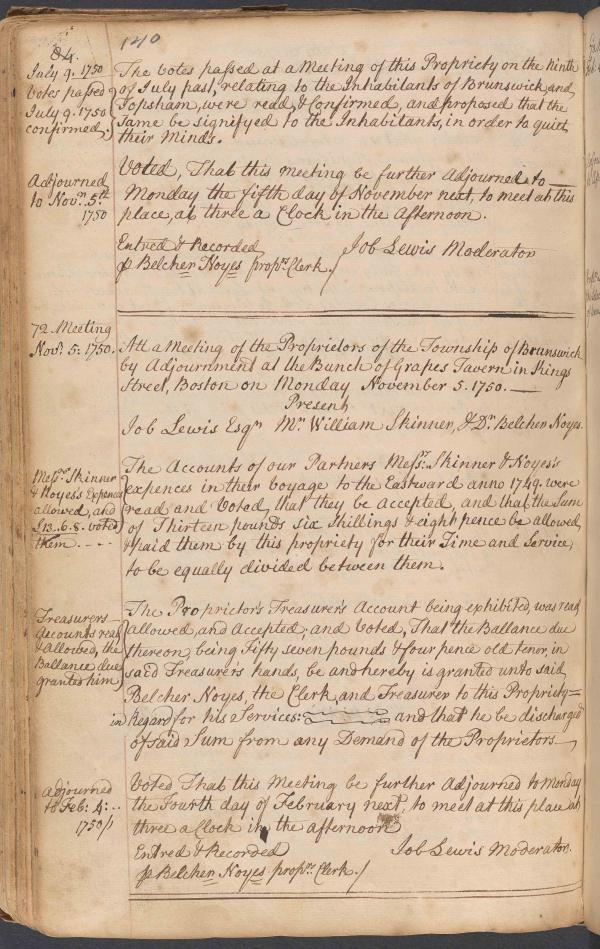 84.
140
July 9. 1750
Votes passed
July 9. 1750
confirmed,
The Votes passed at a Meeting of this Propriety on the Ninth
of July past, relating to the Inhabitants of Brunswick and
Topsham, were redd, & Confirmed, and proposed that the
Same be signifyed to the Inhabitants, in order to quiet
their Minds.
Adjourned
to Novr. 5th
1750
Voted, That this meeting be further Adjourned to
Monday the fifth day of November next, to meet at this
place, at three a Clock in the Afternoon.
Entred & Recorded
Job Lewis Moderator
p Belcher Noyes proprs Clerk.
72. Meeting
Novr. 5. 1750.
Att a Meeting of the Proprietors of the Township of Brunswick
by Adjournment at the Bunch of Grapes Tavern in Kings
Street, Boston on Monday November 5. 1750.
Present
Job Lewis Esqr Mr. William Skinner, & Dr. Belcher Noyes.
Messrs Skinner
& Noyes's Expences
allowed, and
£13. 6. 8. voted
them
The Accounts of our Partners Messrs. Skinner & Noyes's
expences in their Voyage to the Eastward anno 1749. were
read and Voted, that they be Accepted, and that the Sum
of Thirteen pounds six Shillings & eight pence be allowed
& paid them by this propriety for their Time and Service,
to be equally divided between them.
Treasurers
Accounts read
& Allowed, the
Ballance due
granted him
The Proprietor's Treasurer's Account being exhibited, was read
allowed, and Accepted; and Voted, That the Ballance due
thereon, being Fifty seven pounds & four pence old tenor, in
said Treasurer's hands, be and hereby is granted unto said
Belcher Noyes, the Clerk and Treasurer to this Propriety=
in Regard for his Services: and that he be discharged
of said Sum from any Demand of the Proprietors
Adjourned
to Feb: 4:
1750/1
Voted That this Meeting be further Adjourned to Monday
the Fourth day of February next, to meet at this place at
three a Clock in the afternoon
Entred & Recorded
Job Lewis Moderator.
p Belcher Noyes proprs Clerk.